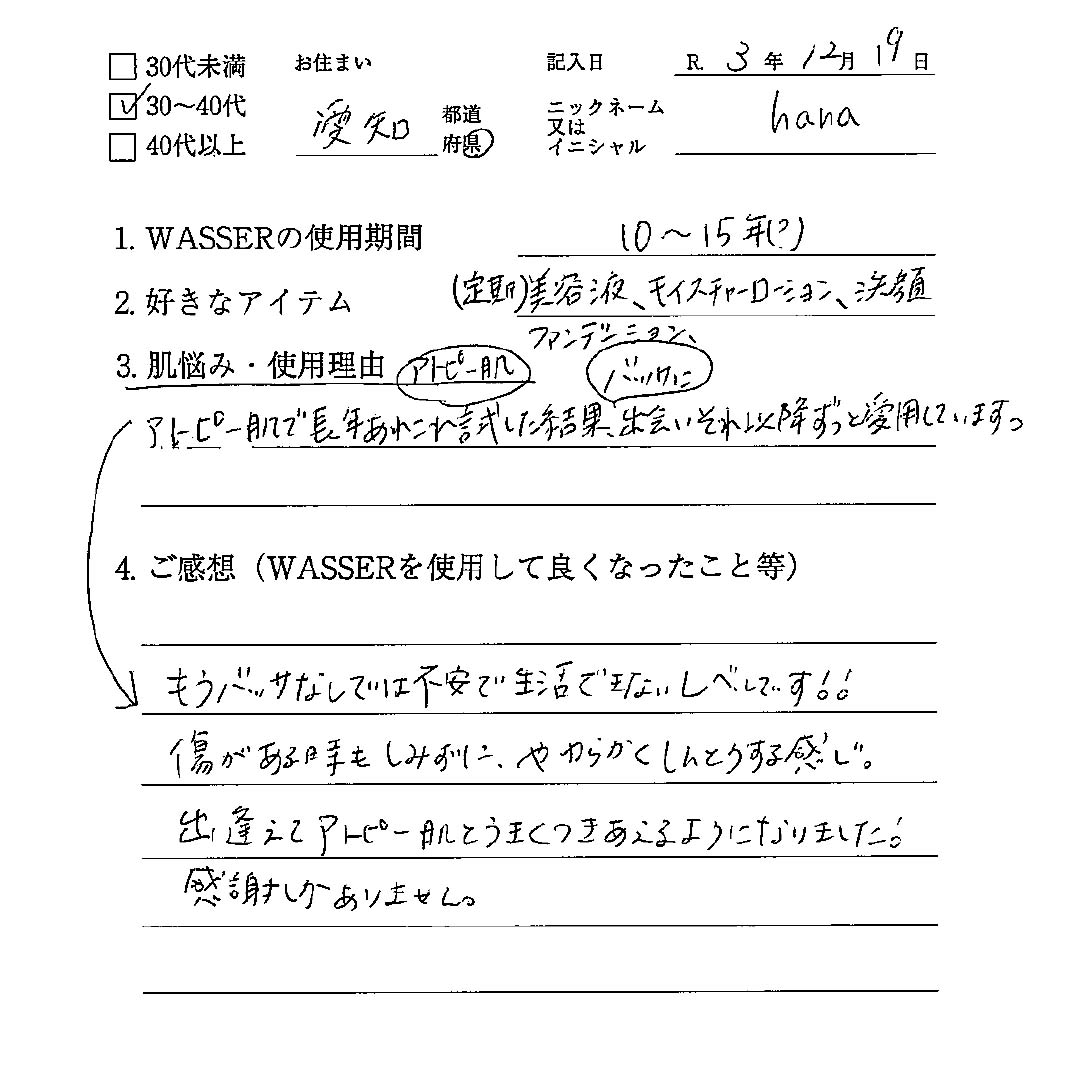 30代未満 お住まい 記入日 R. 3年 12月 19日
30〜40代 愛知 都道府県 ニックネーム又はイニシャル hana
40代以上
1. WASSERの使用期間 10〜15年(?)
2. 好きなアイテム (定期)美容液、モイスチャーローション、洗顔
ファンデーション、
3. 肌悩み・使用理由 アトピー肌 バッサに
アトピー肌で長年あれこれ試した結果、出会いそれ以降ずっと愛用しています。
4. ご感想（WASSERを使用して良くなったこと等）
もうバッサなしでは不安で生活できないレベルです!!
傷がある時もしみずに、やわらかくしんとうする感じ。
出逢えてアトピー肌とうまくつきあえるようになりました!
感謝しかありません。